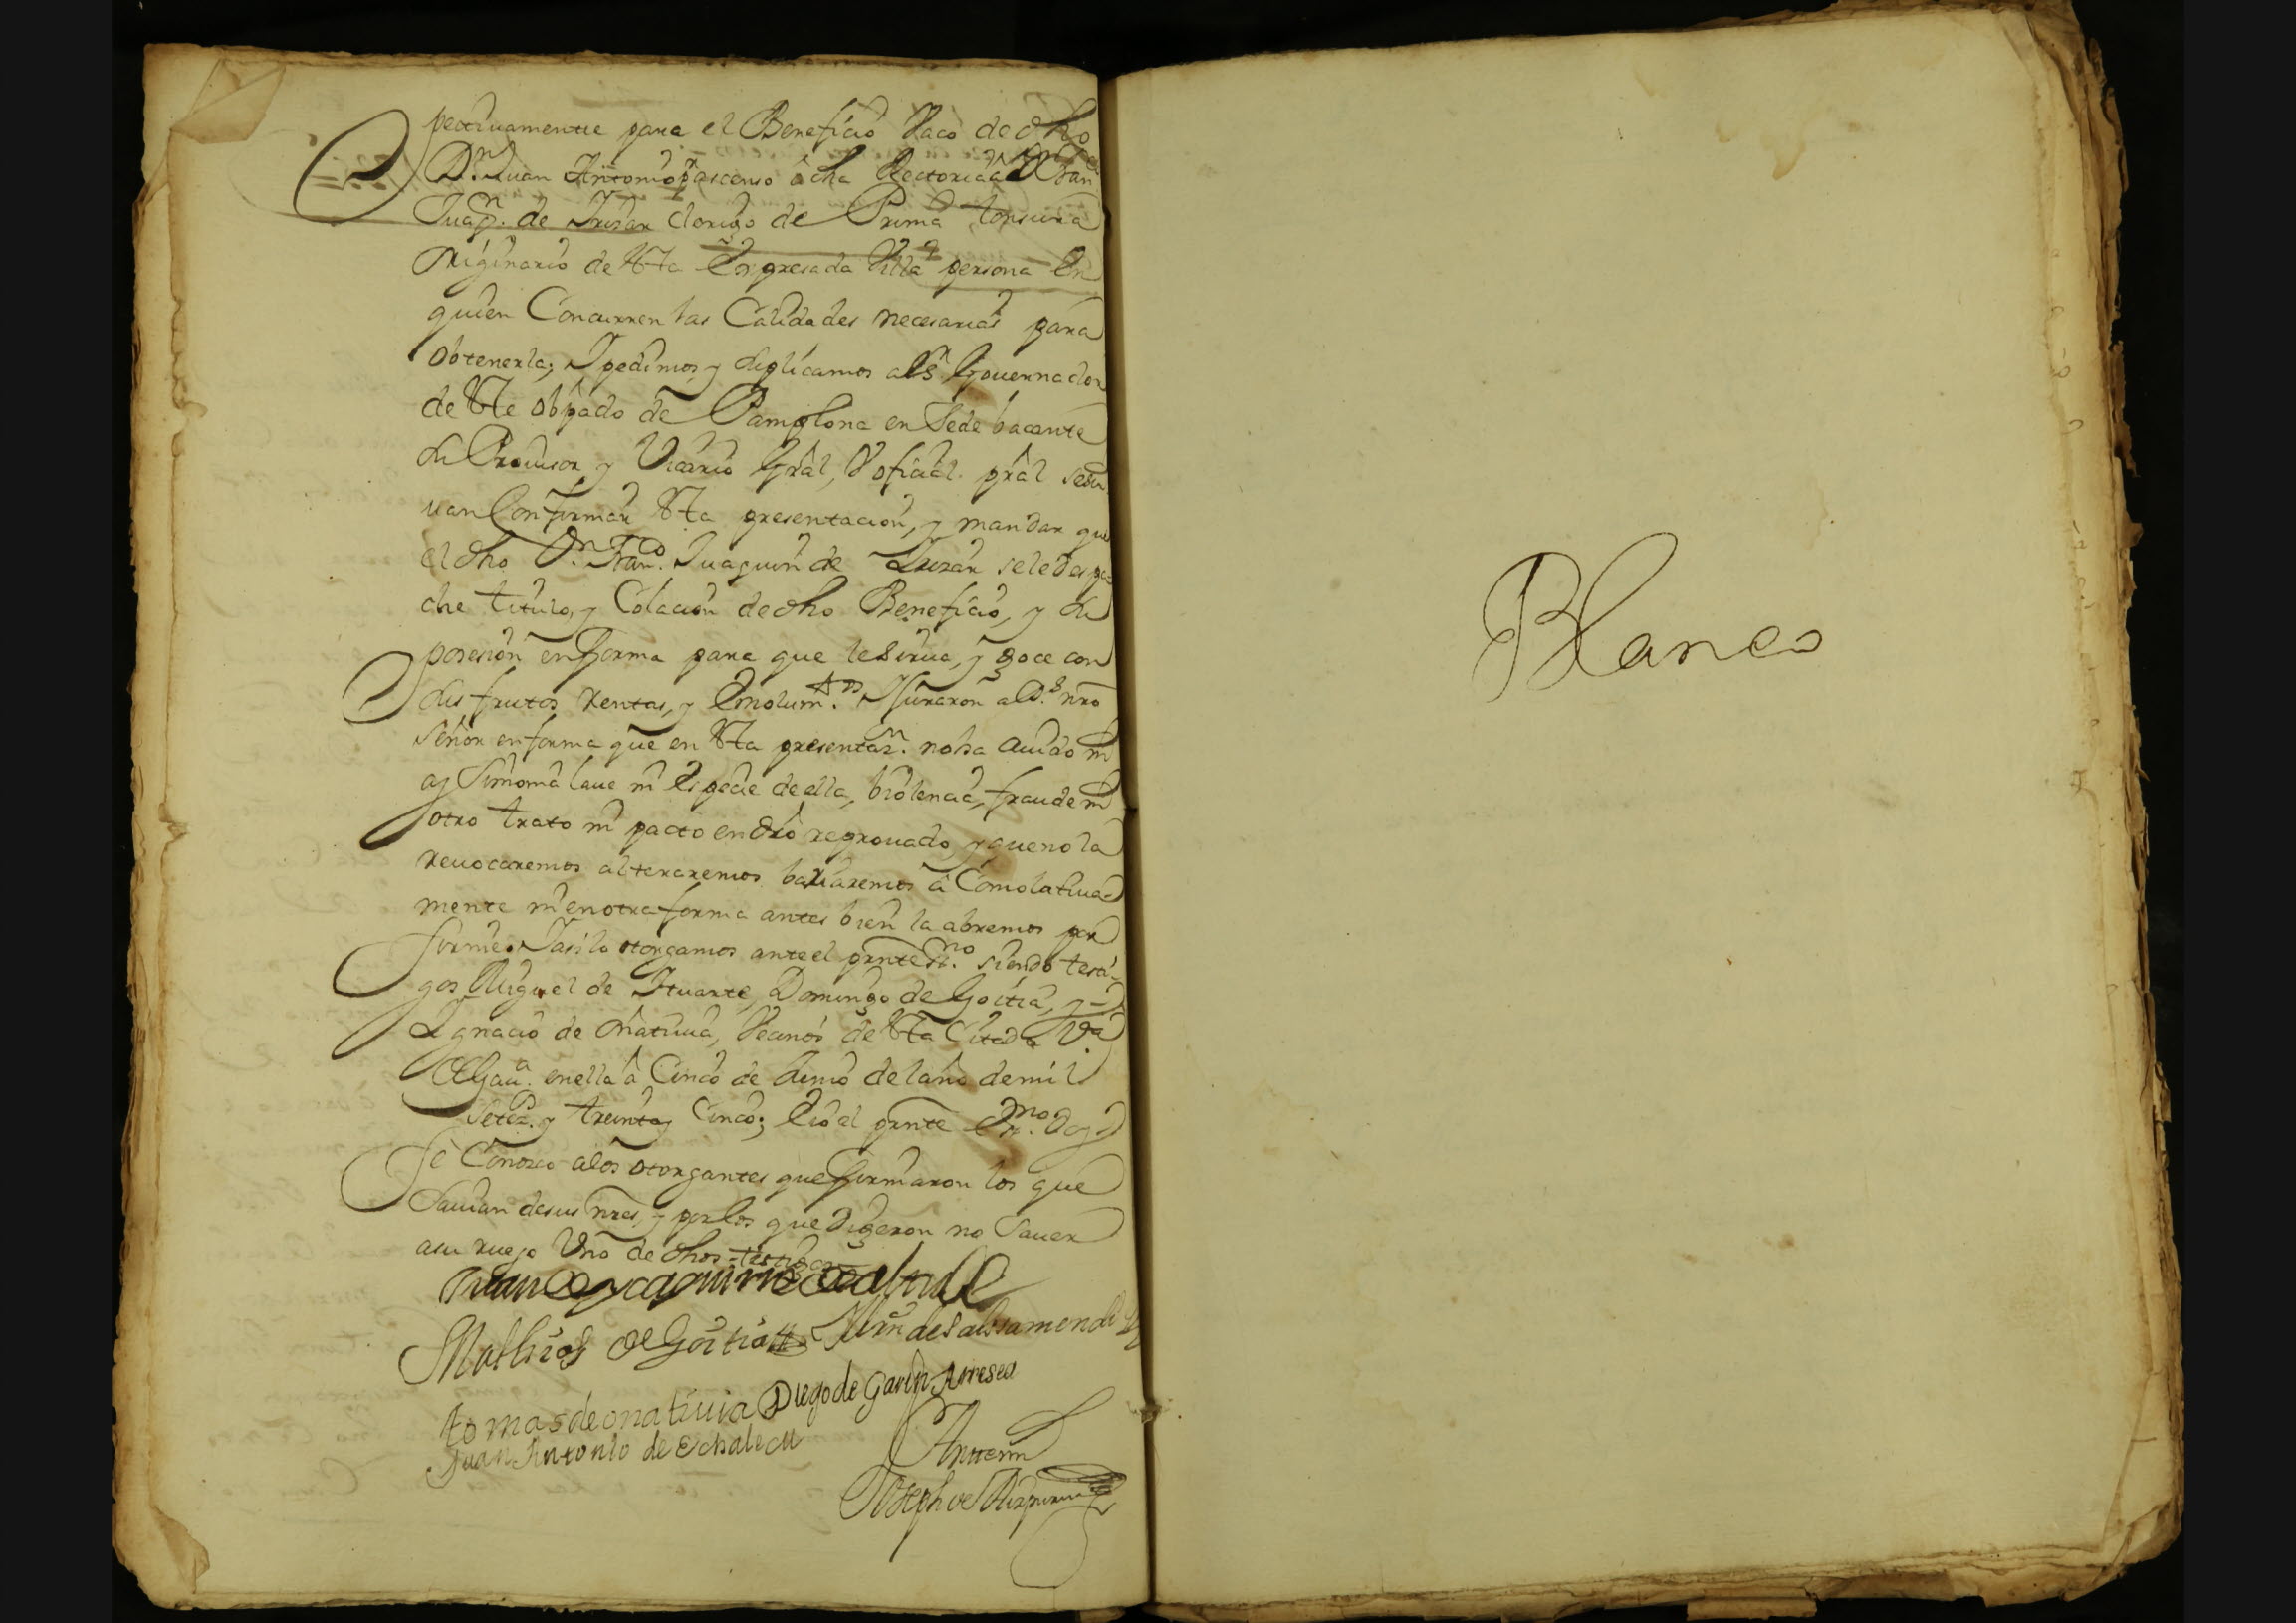 pectiuamente para el Beneficio Vaco de dho
Dn. Juan Antonio pr. ascenso â dha Rectoria â Dn. Fran.co
Juaqn. de Irizar Clerigo de Prima tonsura
Originario de esta Expresada Villa persona en
quien Concurren las Calidades necesarias para
Obtenerla; I pedimos y suplicamos al Sr. Gouernador
de este obpado de Pamplona en Sede bacante
su Prouisor y Vicario Gral, V oficial pral se sir
uan Confirmar esta presentacion, y mandar que
el dho Dn. Franco. Juaquin de Irizar se le despa
che titulo, y Colacion de dho Beneficio, y su
posesion en forma para que le sirua, y goce con
sus frutos Rentas, y Emolumtos. I juraron a Ds. nro
Señor en forma que en esta presentazn. no ha auido ni
ay Simonia laue ni Especie de ella, biolencia, fraude ni
otro trato ni pacto en dro reprouado, y que no la
reuocaremos alteraremos bariaremos â Comolatiua
mente ni en otra forma antes bien la abremos por
firme. I asi lo otorgamos ante el prnte ssno. siendo testi
gos Miguel de Ituarte, Domingo de Goitia, y
Ignacio de Oñatiuia, Vecinos de esta Citada Va.
en ella â Cinco de Junio del año de mil
Setezs. y treinta y Cinco; E io el prnte Esno. Doy
fe Conozco a los otorgantes que firmaron los que
Sauian de sus nres, y por los que digeron no Sauer
a su ruego Vno de dhos testigos
Mathias de Goitia Mrn de Salsamendi
tomas de onatiuia Diego de Garin Arresea
Juan Antonio de Echalecu
Ante mi
Joseph de Aizpurua
Blanco